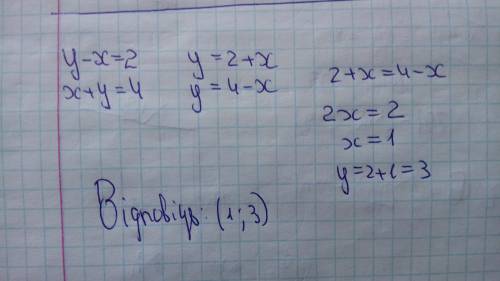 y-x=2
x+y=4
y=2+x
y=4-x
2+x=4-x
2x=2
x=1
y=2+1=3
Відповідь: (1;3)